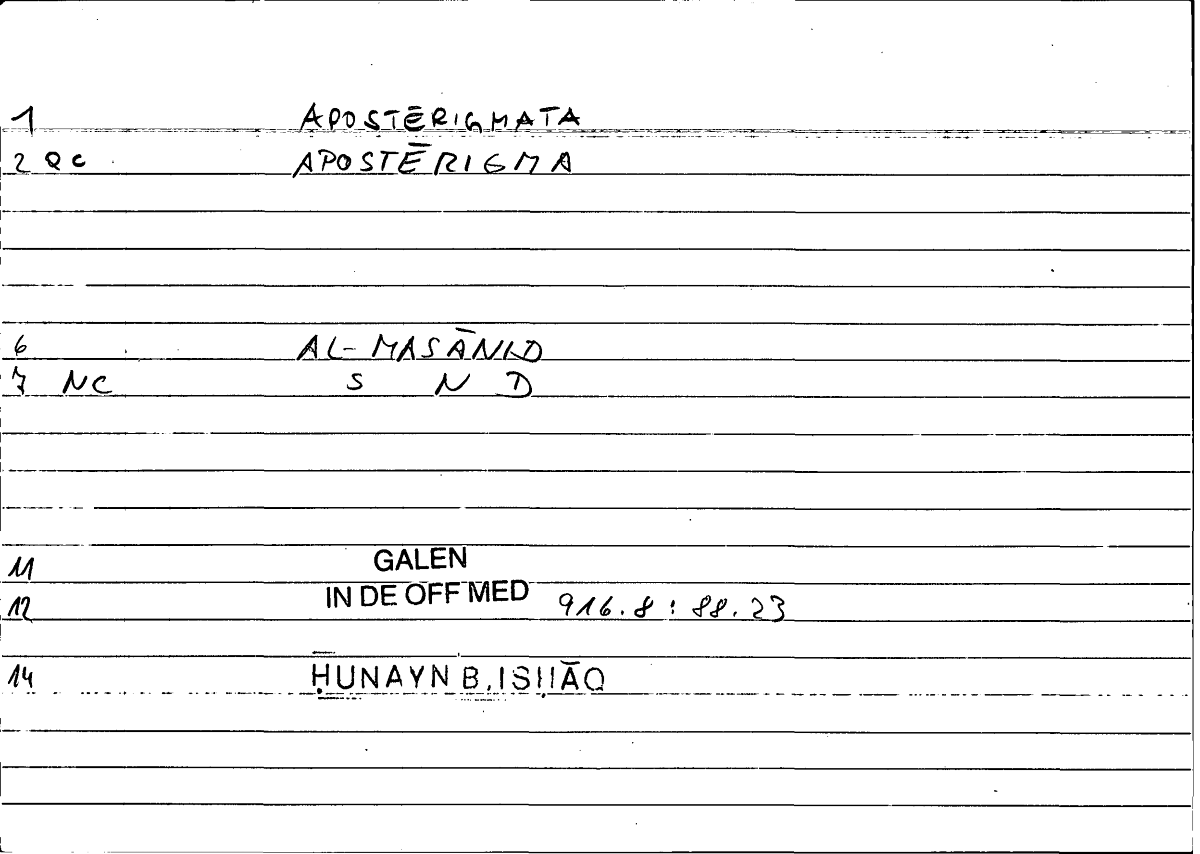 1 APOSTĒRIGMATA
2 QC APOSTĒRIGMA
6 AL-MASĀNID
7 NC S N D
11 GALEN
12 IN DE OFF MED 916.8 : 88.23
14 ḤUNAYN B. ISḤĀQ